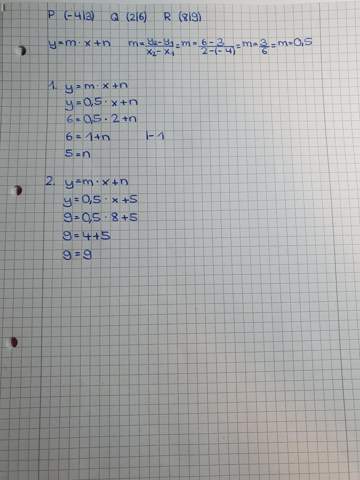 P (-4|3) Q (2|6) R (8|9)
y=m·x+n m=y₂-y₁/x₂-x₁=m=6-3/2-(-4)=m=3/6=m=0,5
1. y=m·x+n
y=0,5·x+n
6=0,5·2+n
6=1+n |-1
5=n
2. y=m·x+n
y=0,5·x+5
9=0,5·8+5
9=4+5
9=9